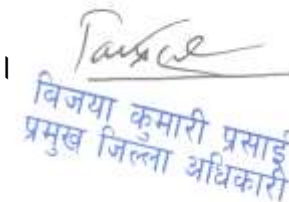 ।
विजया कुमारी प्रसाई
प्रमुख जिल्ला अधिकारी